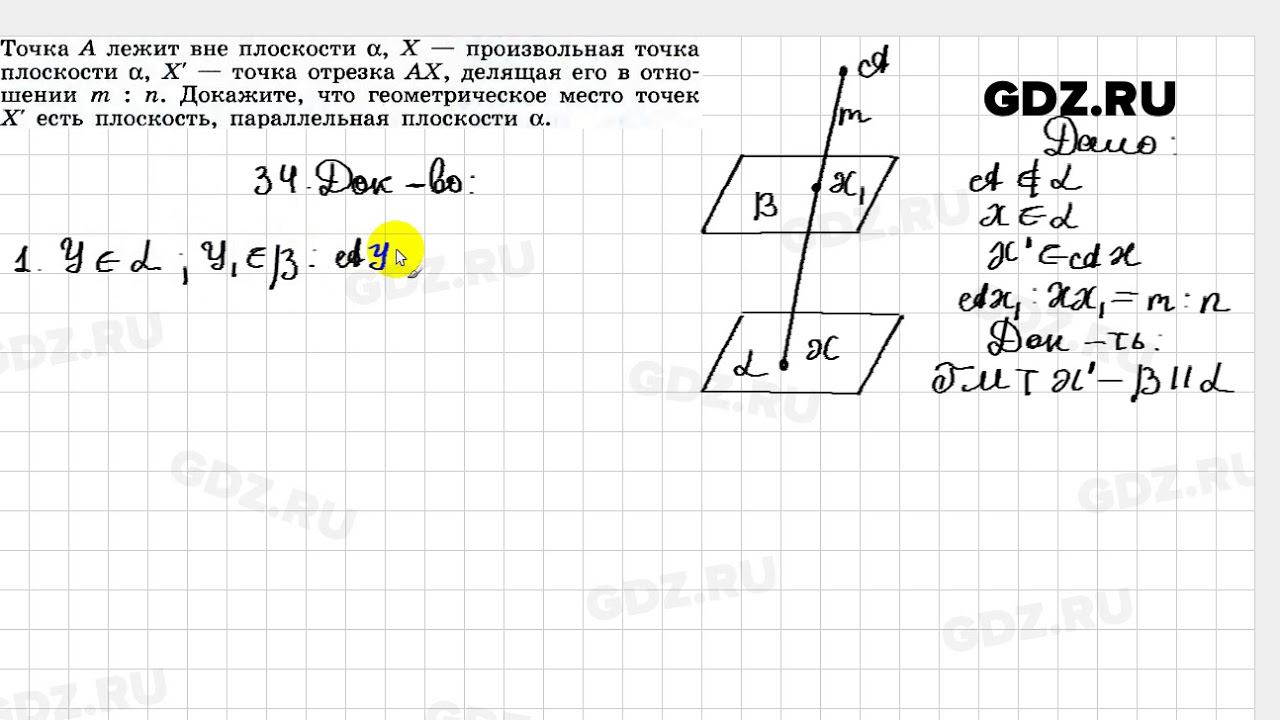 Точка A лежит вне плоскости α, X — произвольная точка
плоскости α, X′ — точка отрезка AX, делящая его в отно-
шении m : n. Докажите, что геометрическое место точек
X′ есть плоскость, параллельная плоскости α.
GDZ.RU
34. Док-во:
1. Y ∈ α ; Y₁ ∈ β : AY
A
m
X₁
β
X
α
Дано:
A ∉ α
X ∈ α
X' ∈ AX
AX₁ : XX₁ = m : n
Док-ть:
ГМТ X' – β || α
GDZ.RU
GDZ.RU
GDZ.RU
GDZ.RU
GDZ.RU
GDZ.RU
GDZ.RU
GDZ.RU
GDZ.RU
GDZ.RU